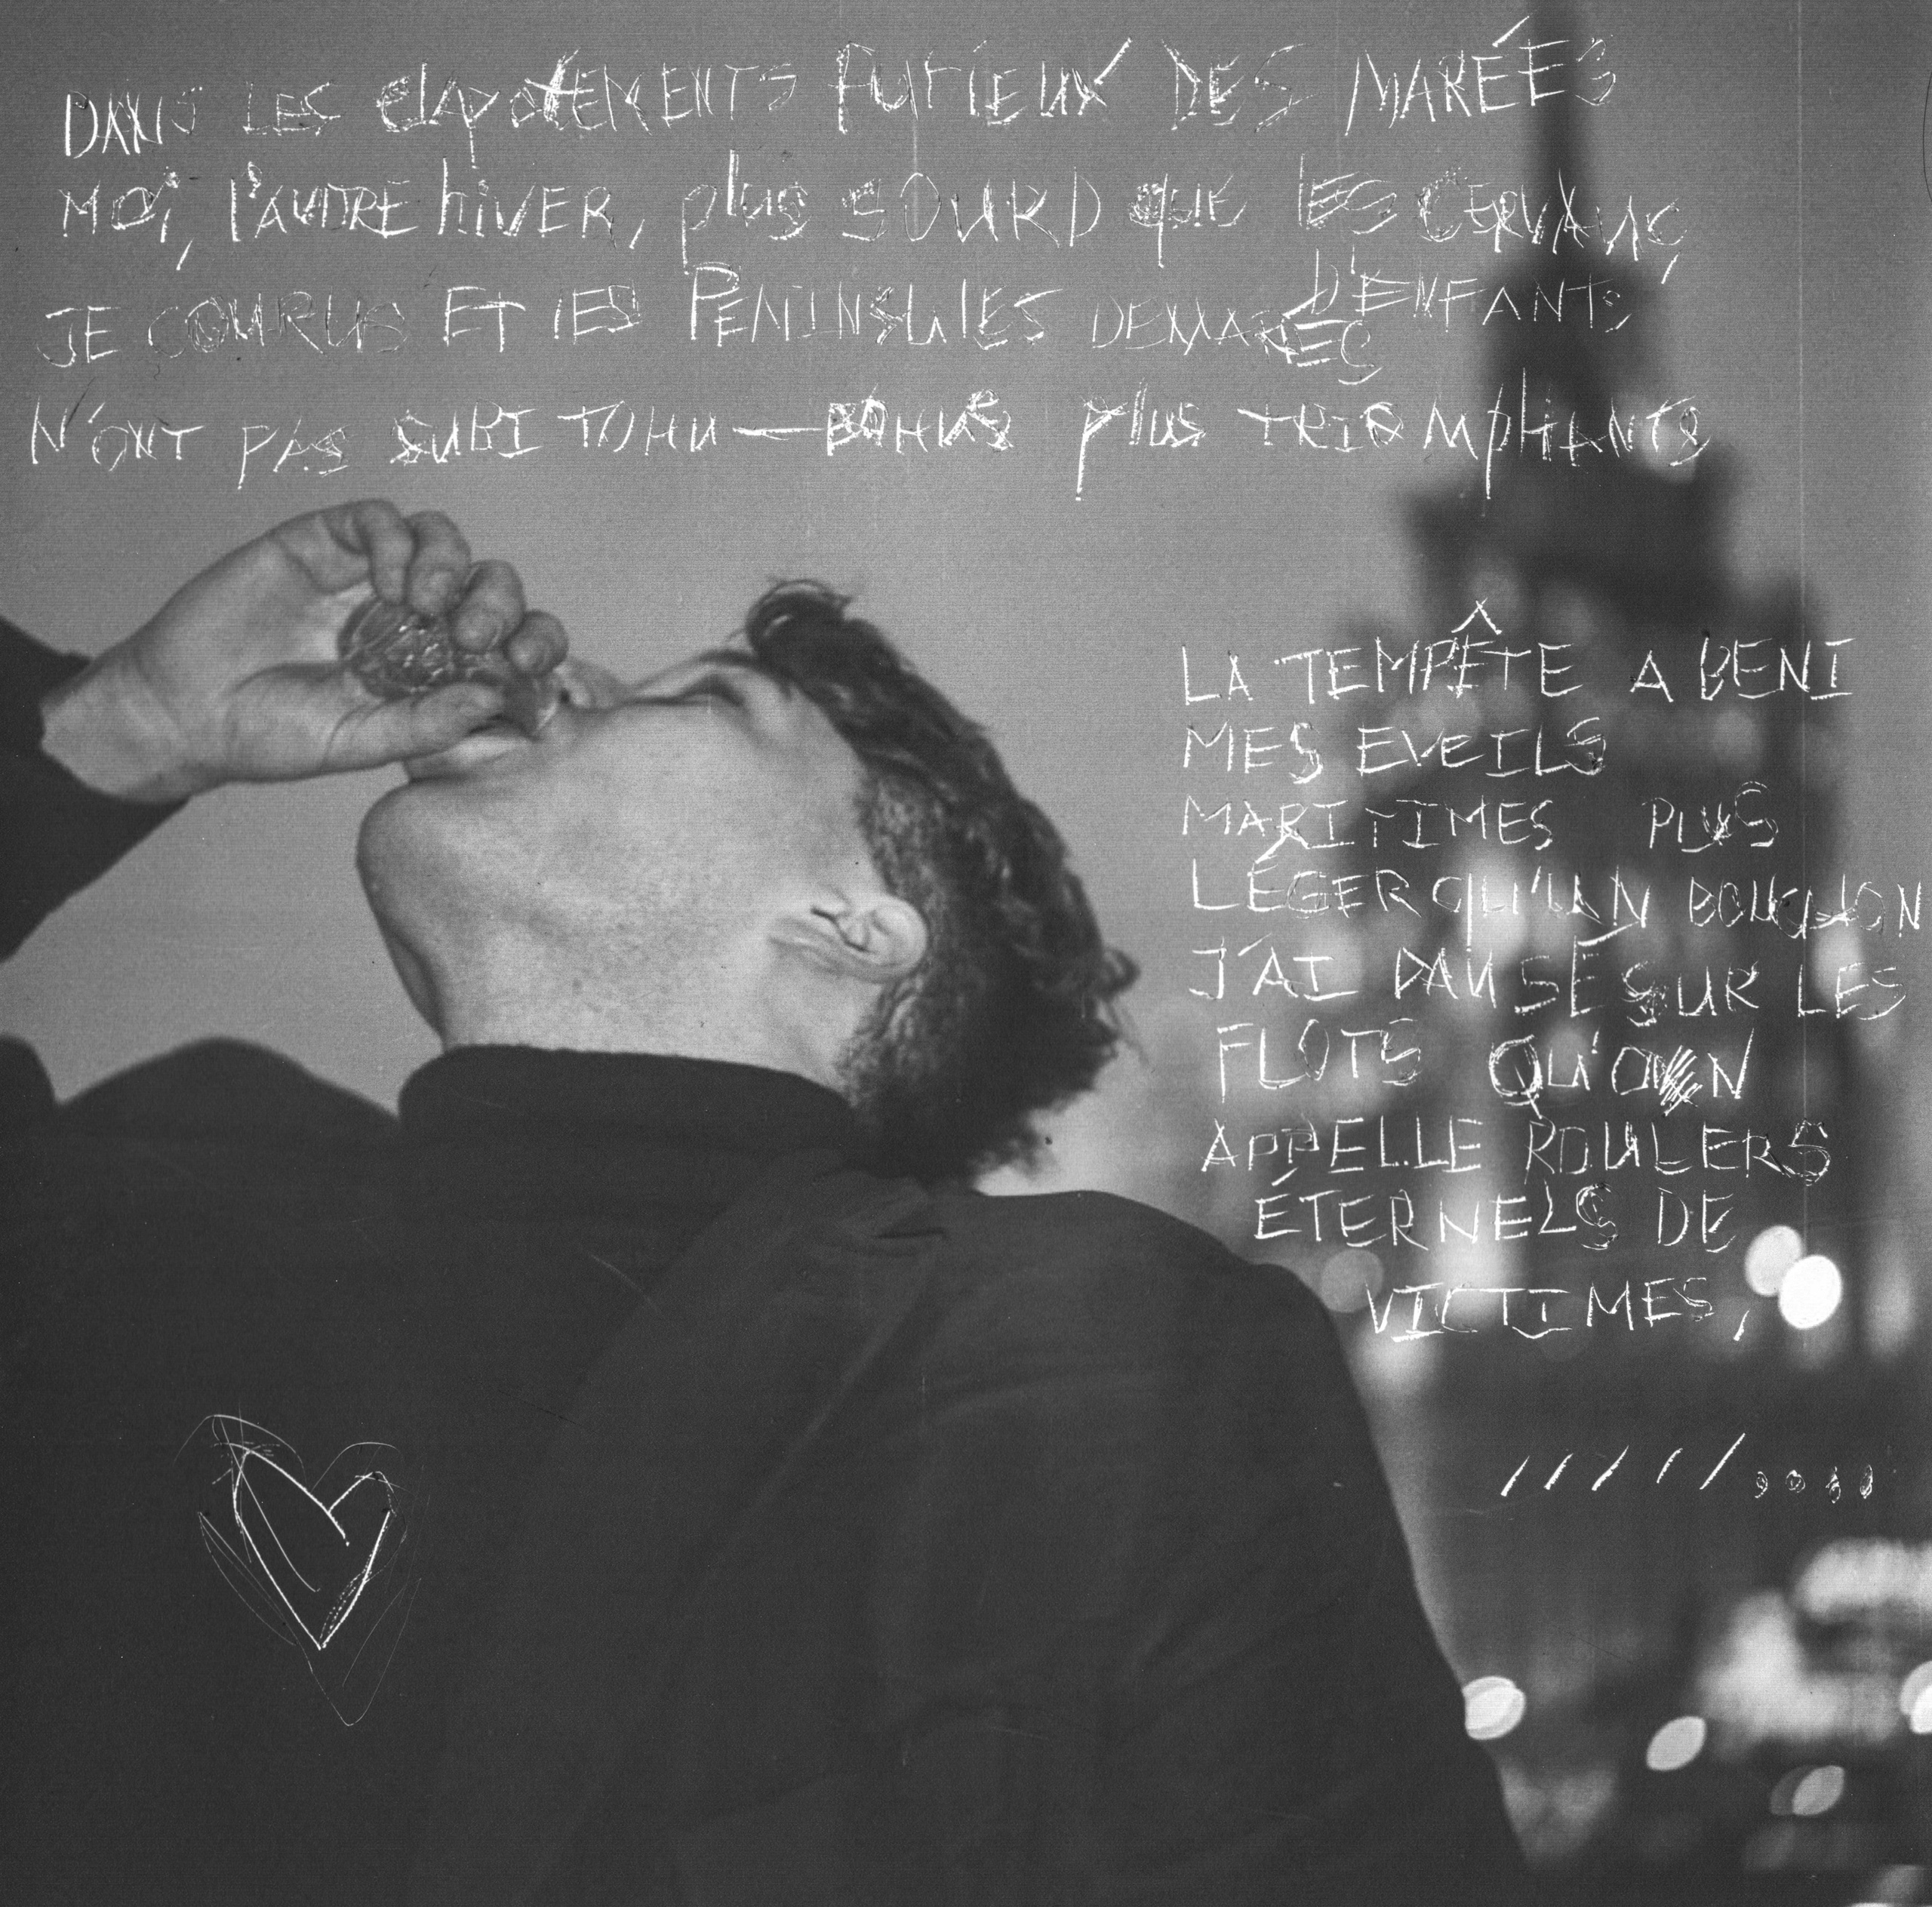 DANS LES clapotEMENTS FURiEUX DES MARÉES
MOi, l'AUTRE hiVER, plus SOURD que lES CERVAUX
D'ENFANTS,
JE COURUS ET lES PENINSULES DEMARÉES
N'ONT PAS SUBI TOHU—BOHUS plus TRIOMphANTS
LA TEMPÊTE A BENI
MES EVeILS
MARITIMES PLUS
LÉGER QU'UN BOUCHON
J'AI DANSÉ SUR LES
FLOTS QU'ON
APPELLE ROULERS
ÉTERNELS DE
VICTIMES,